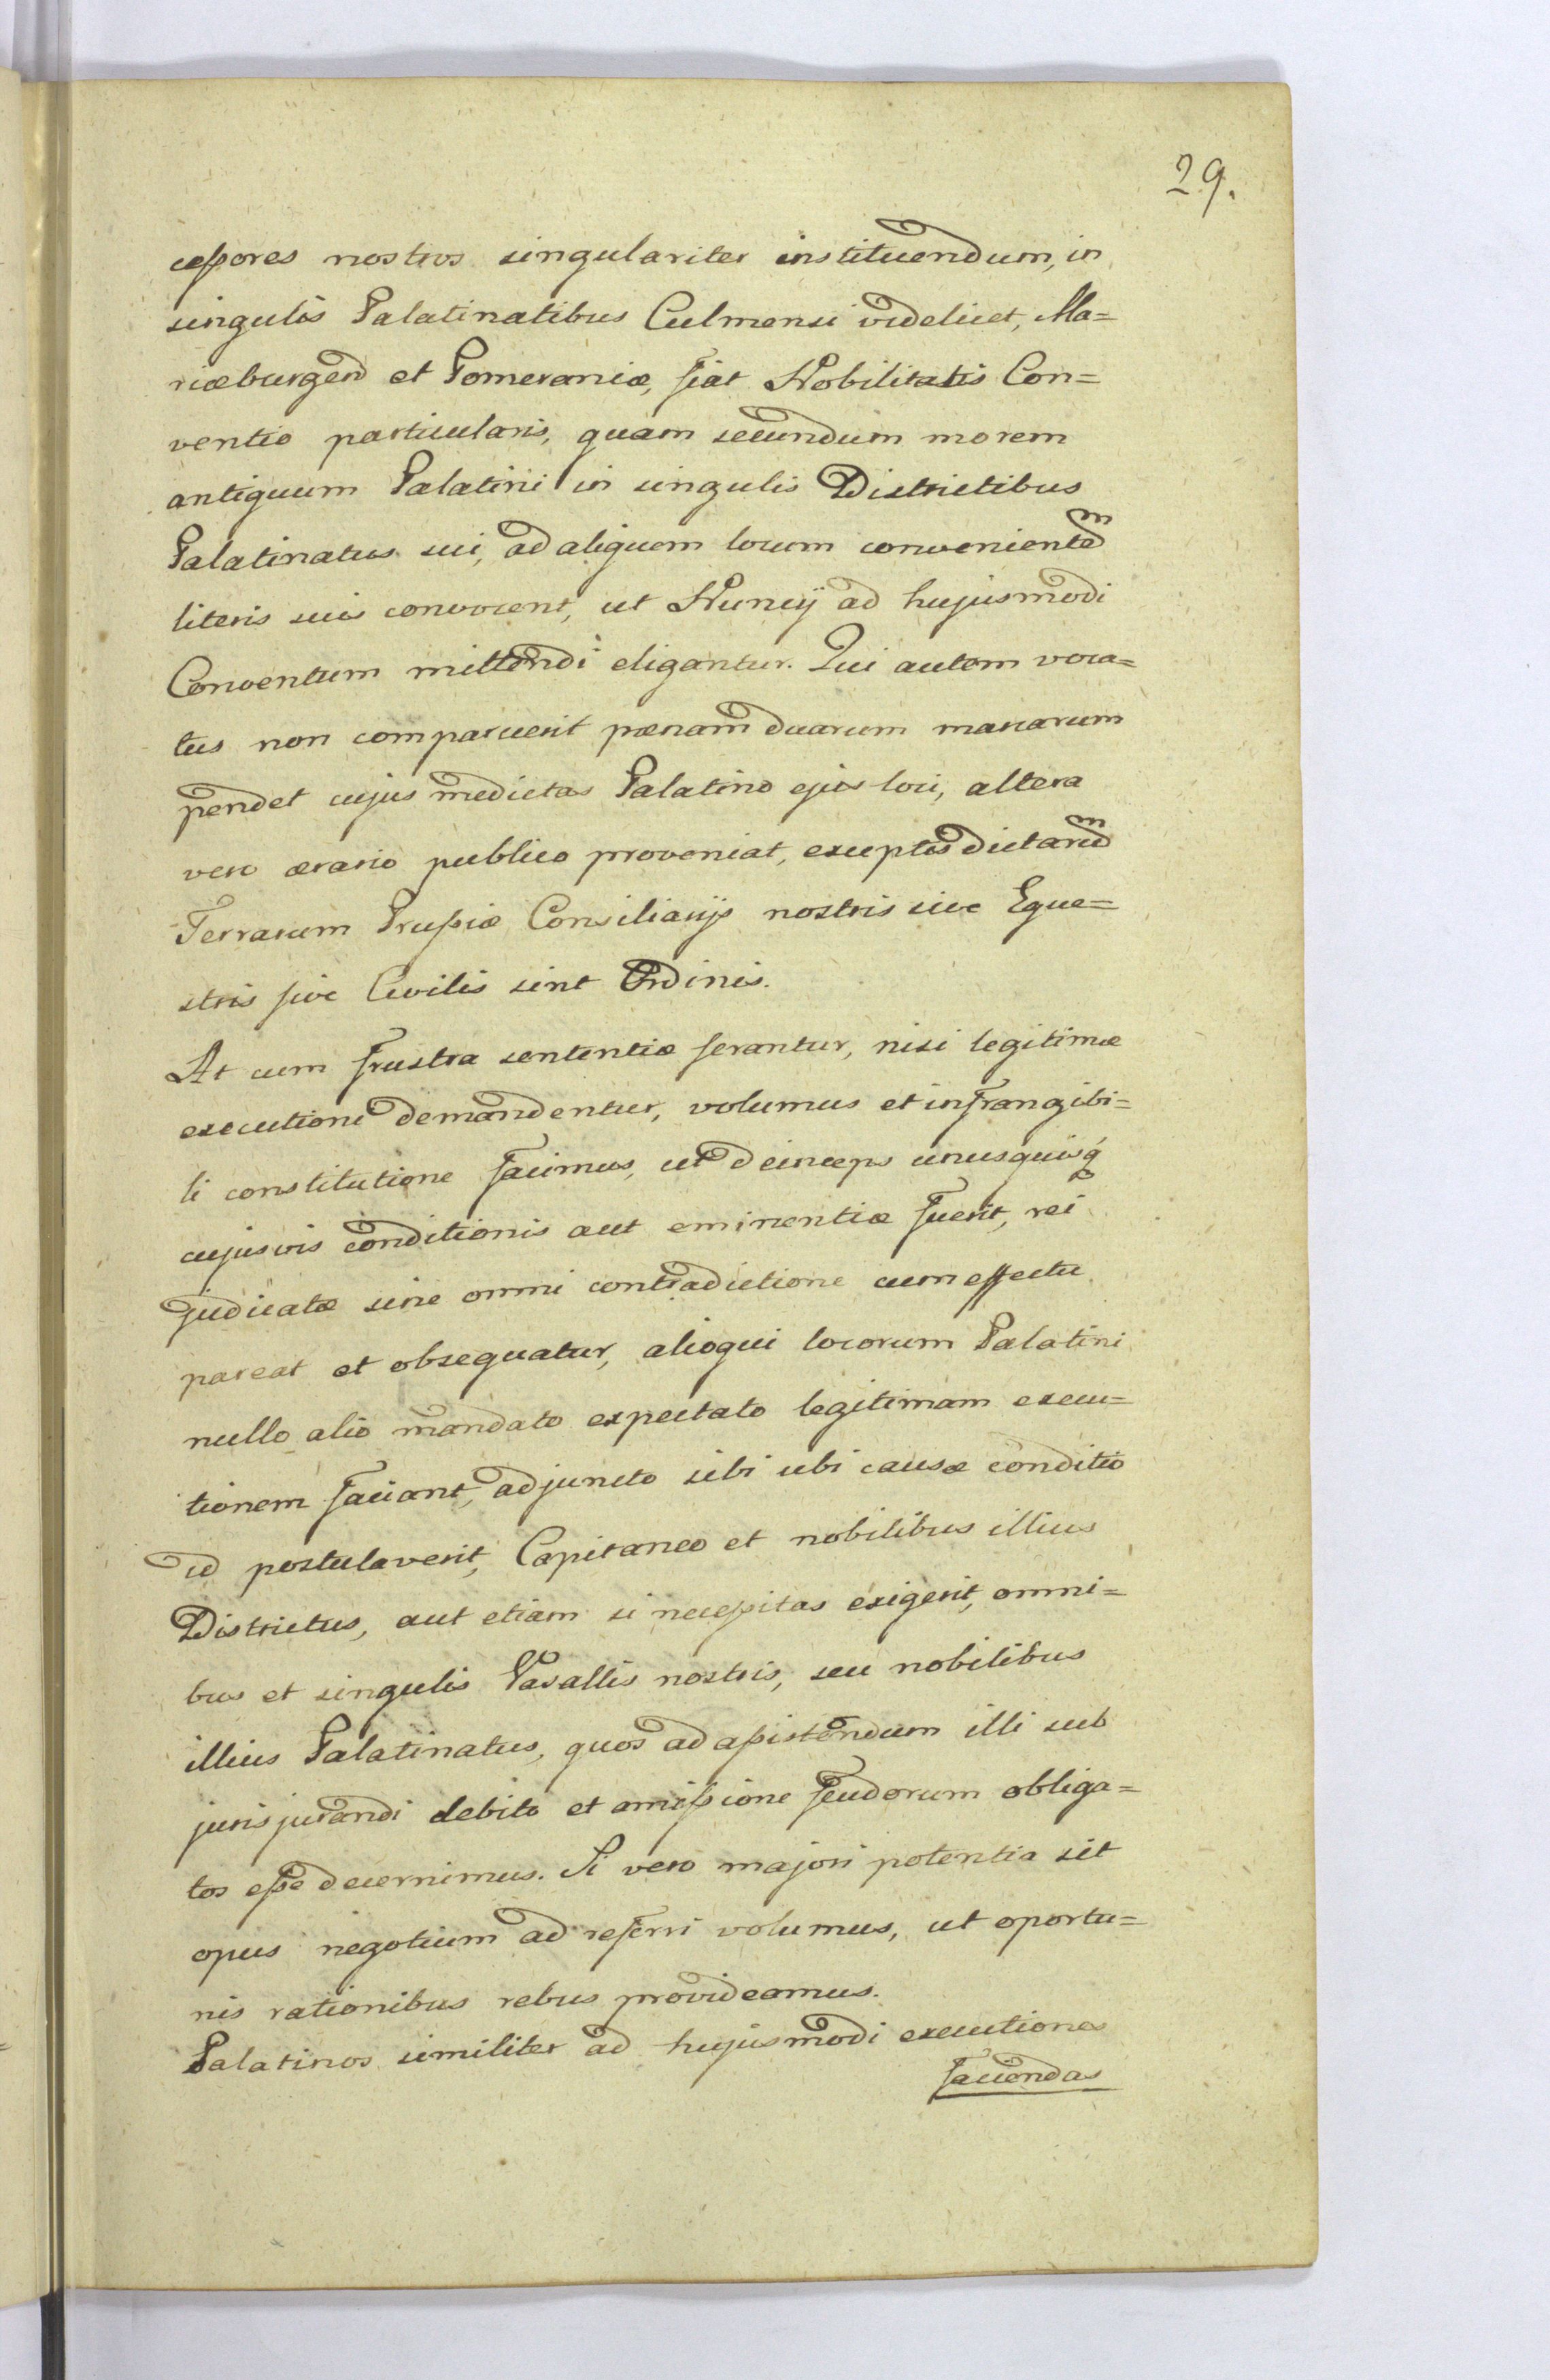 29.
cessores nostros singulariter instituendum, in
singulis Palatinatibus Culmensi videlicet, Ma=
riæburgen et Pomeraniæ, fiat Nobilitatis Con=
ventio particularis, quam secundum morem
antiquum Palatini in singulis Districtibus
Palatinatus sui, ad aliquem locum convenientem
literis suis convocent, ut Nuncij ad hujusmodi
Conventum mittendi eligantur. Qui autem voca=
tus non comparuerit pœnam duarum marcarum
pendet cujus medietas Palatino ejus loci, altera
vero ærario publico proveniat, exceptis dictarum
Terrarum Prussiæ Consiliarijs nostris sive Eque=
stris sive Civilis sint Ordinis.
At cum frustra sententiæ ferantur, nisi legitimæ
executioni demandentur, volumus et infrangibi=
li constitutione facimus, ut deinceps unusquisq
cujusvis conditionis aut eminentiæ fuerit, rei
judicatæ sine omni contradictione cum effectu
pareat et obsequatur, alioqui locorum Palatini
nullo alio mandato expectato legitimam execu=
tionem faciant, adjuncto sibi ubi causæ conditio
id postulaverit, Capitaneo et nobilibus illius
Districtus, aut etiam si necessitas exigerit, omni=
bus et singulis Vasallis nostris, seu nobilibus
illius Palatinatus, quos ad assistendum illi sub
jurisjurandi debito et amissione feudorum obliga=
tos esse decernimus. Si vero majori potentia sit
opus negotium ad referri volumus, ut oportu=
nis rationibus rebus provideamus.
Palatinos similiter ad hujusmodi executiones
faciendas